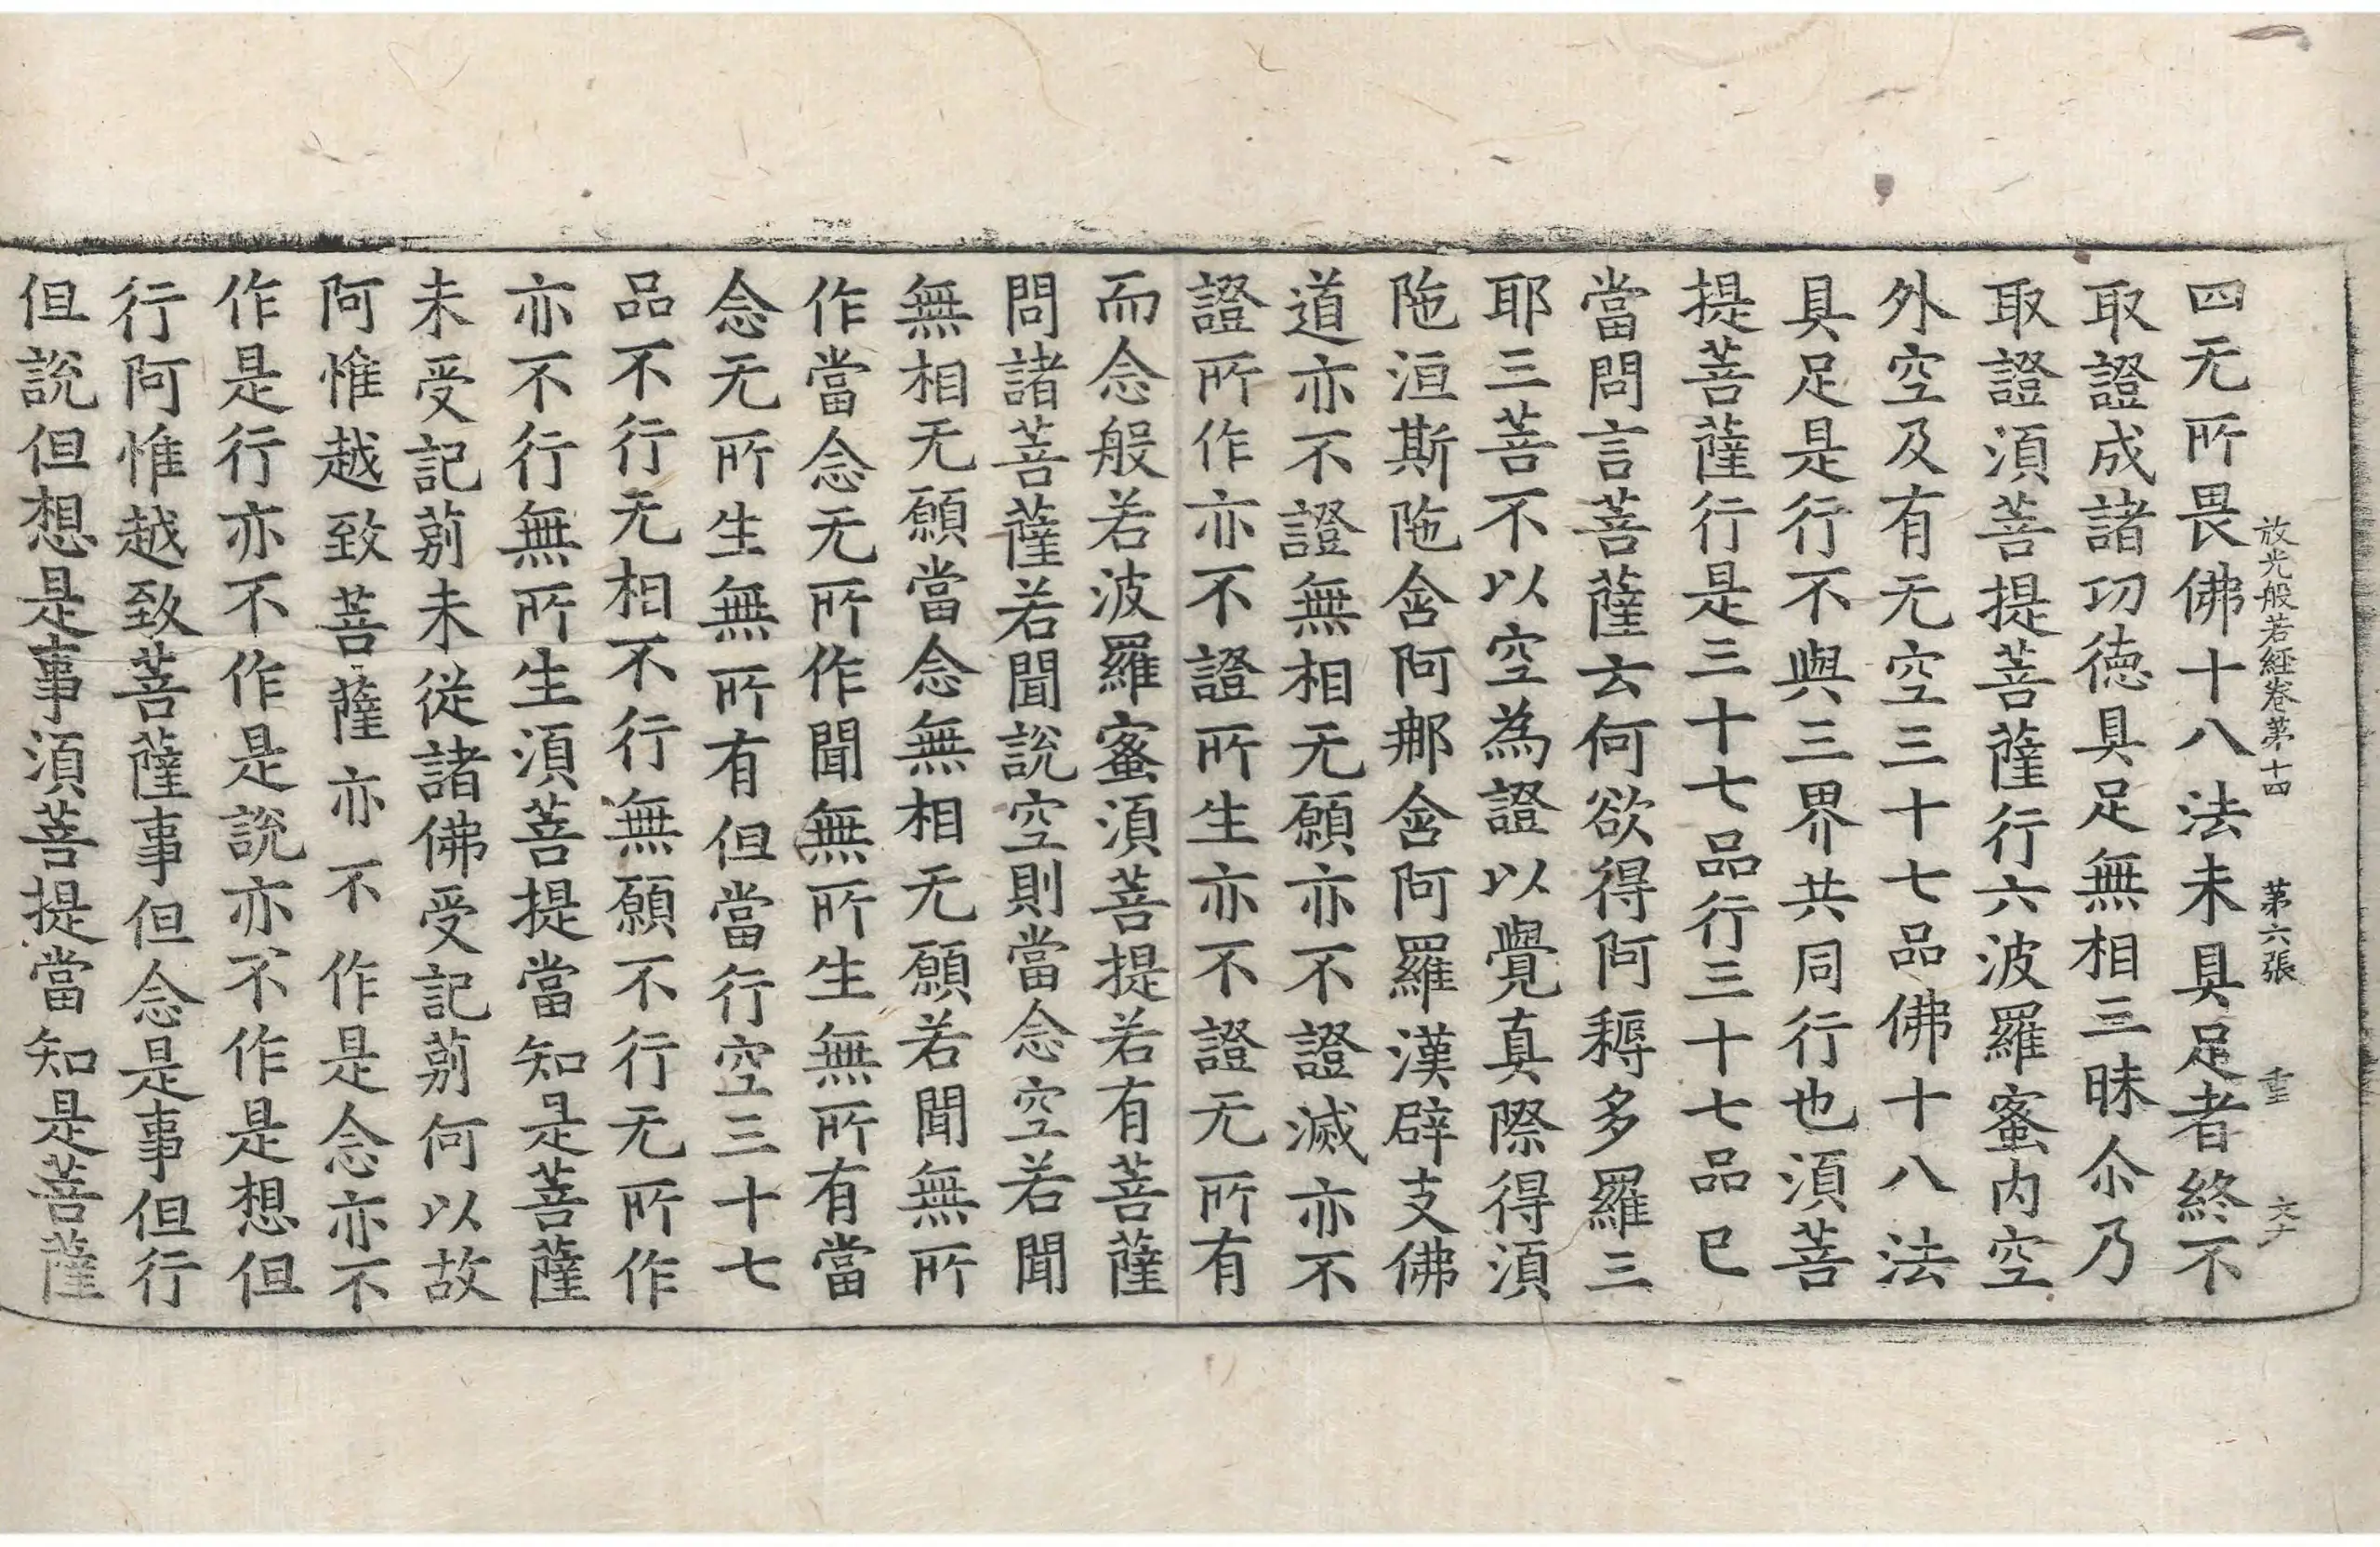 放光般若經卷第十四 第六張 重
四无所畏佛十八法未具足者終不
取證成諸功徳具足無相三昧尒乃
取證須菩提菩薩行六波羅蜜内空
外空及有无空三十七品佛十八法
具足是行不與三界共同行也須菩
提菩薩行是三十七品行三十七品已
當問言菩薩云何欲得阿耨多羅三
耶三菩不以空為證以覺真際得須
陁洹斯陁含阿那含阿羅漢辟支佛
道亦不證無相无願亦不證滅亦不
證所作亦不證所生亦不證无所有
而念般若波羅蜜須菩提若有菩薩
問諸菩薩若聞說空則當念空若聞
無相无願當念無相无願若聞無所
作當念无所作聞無所生無所有當
念无所生無所有但當行空三十七
品不行无相不行無願不行无所作
亦不行無所生須菩提當知是菩薩
未受記莂未從諸佛受記莂何以故
阿惟越致菩薩亦不作是念亦不
作是行亦不作是說亦不作是想但
行阿惟越致菩薩事但念是事但行
但說但想是事須菩提當知是菩薩